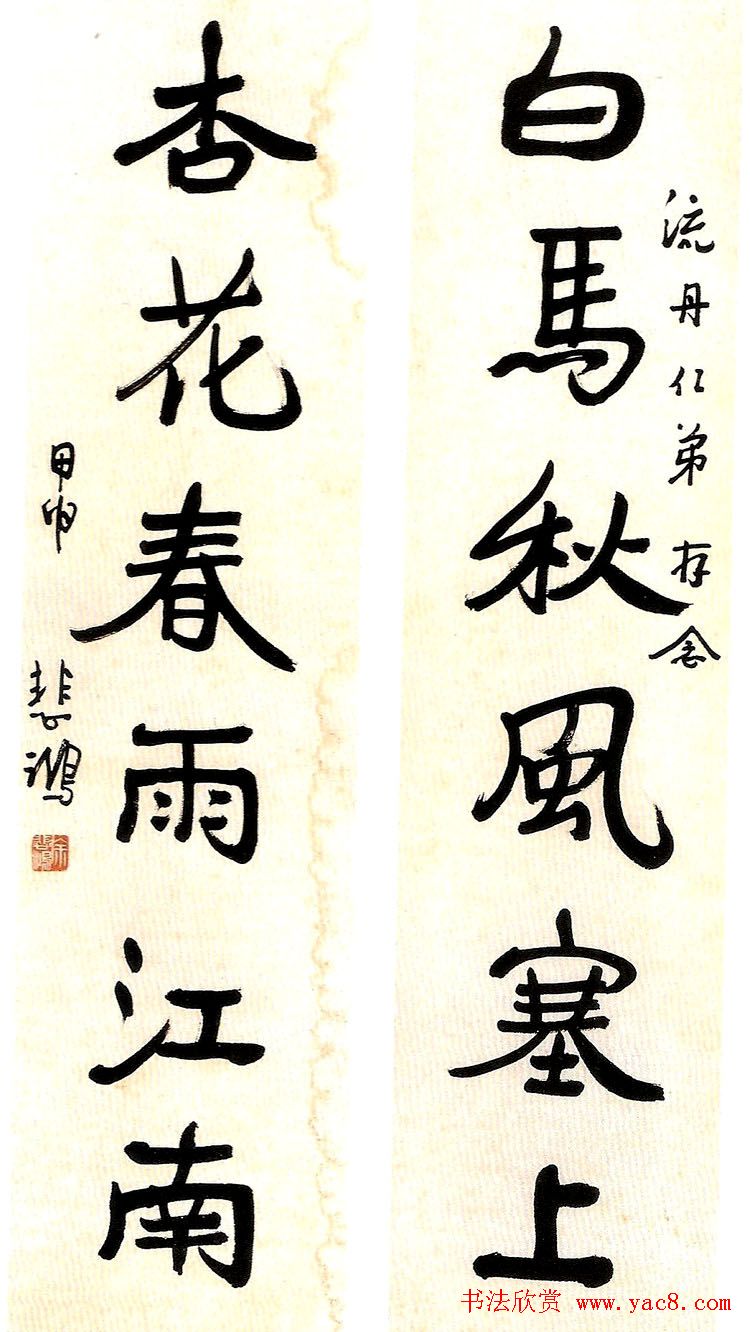 白馬秋風塞上
流丹仁弟 存念
杏花春雨江南
甲申 悲鴻
书法欣赏 www.yac8.com